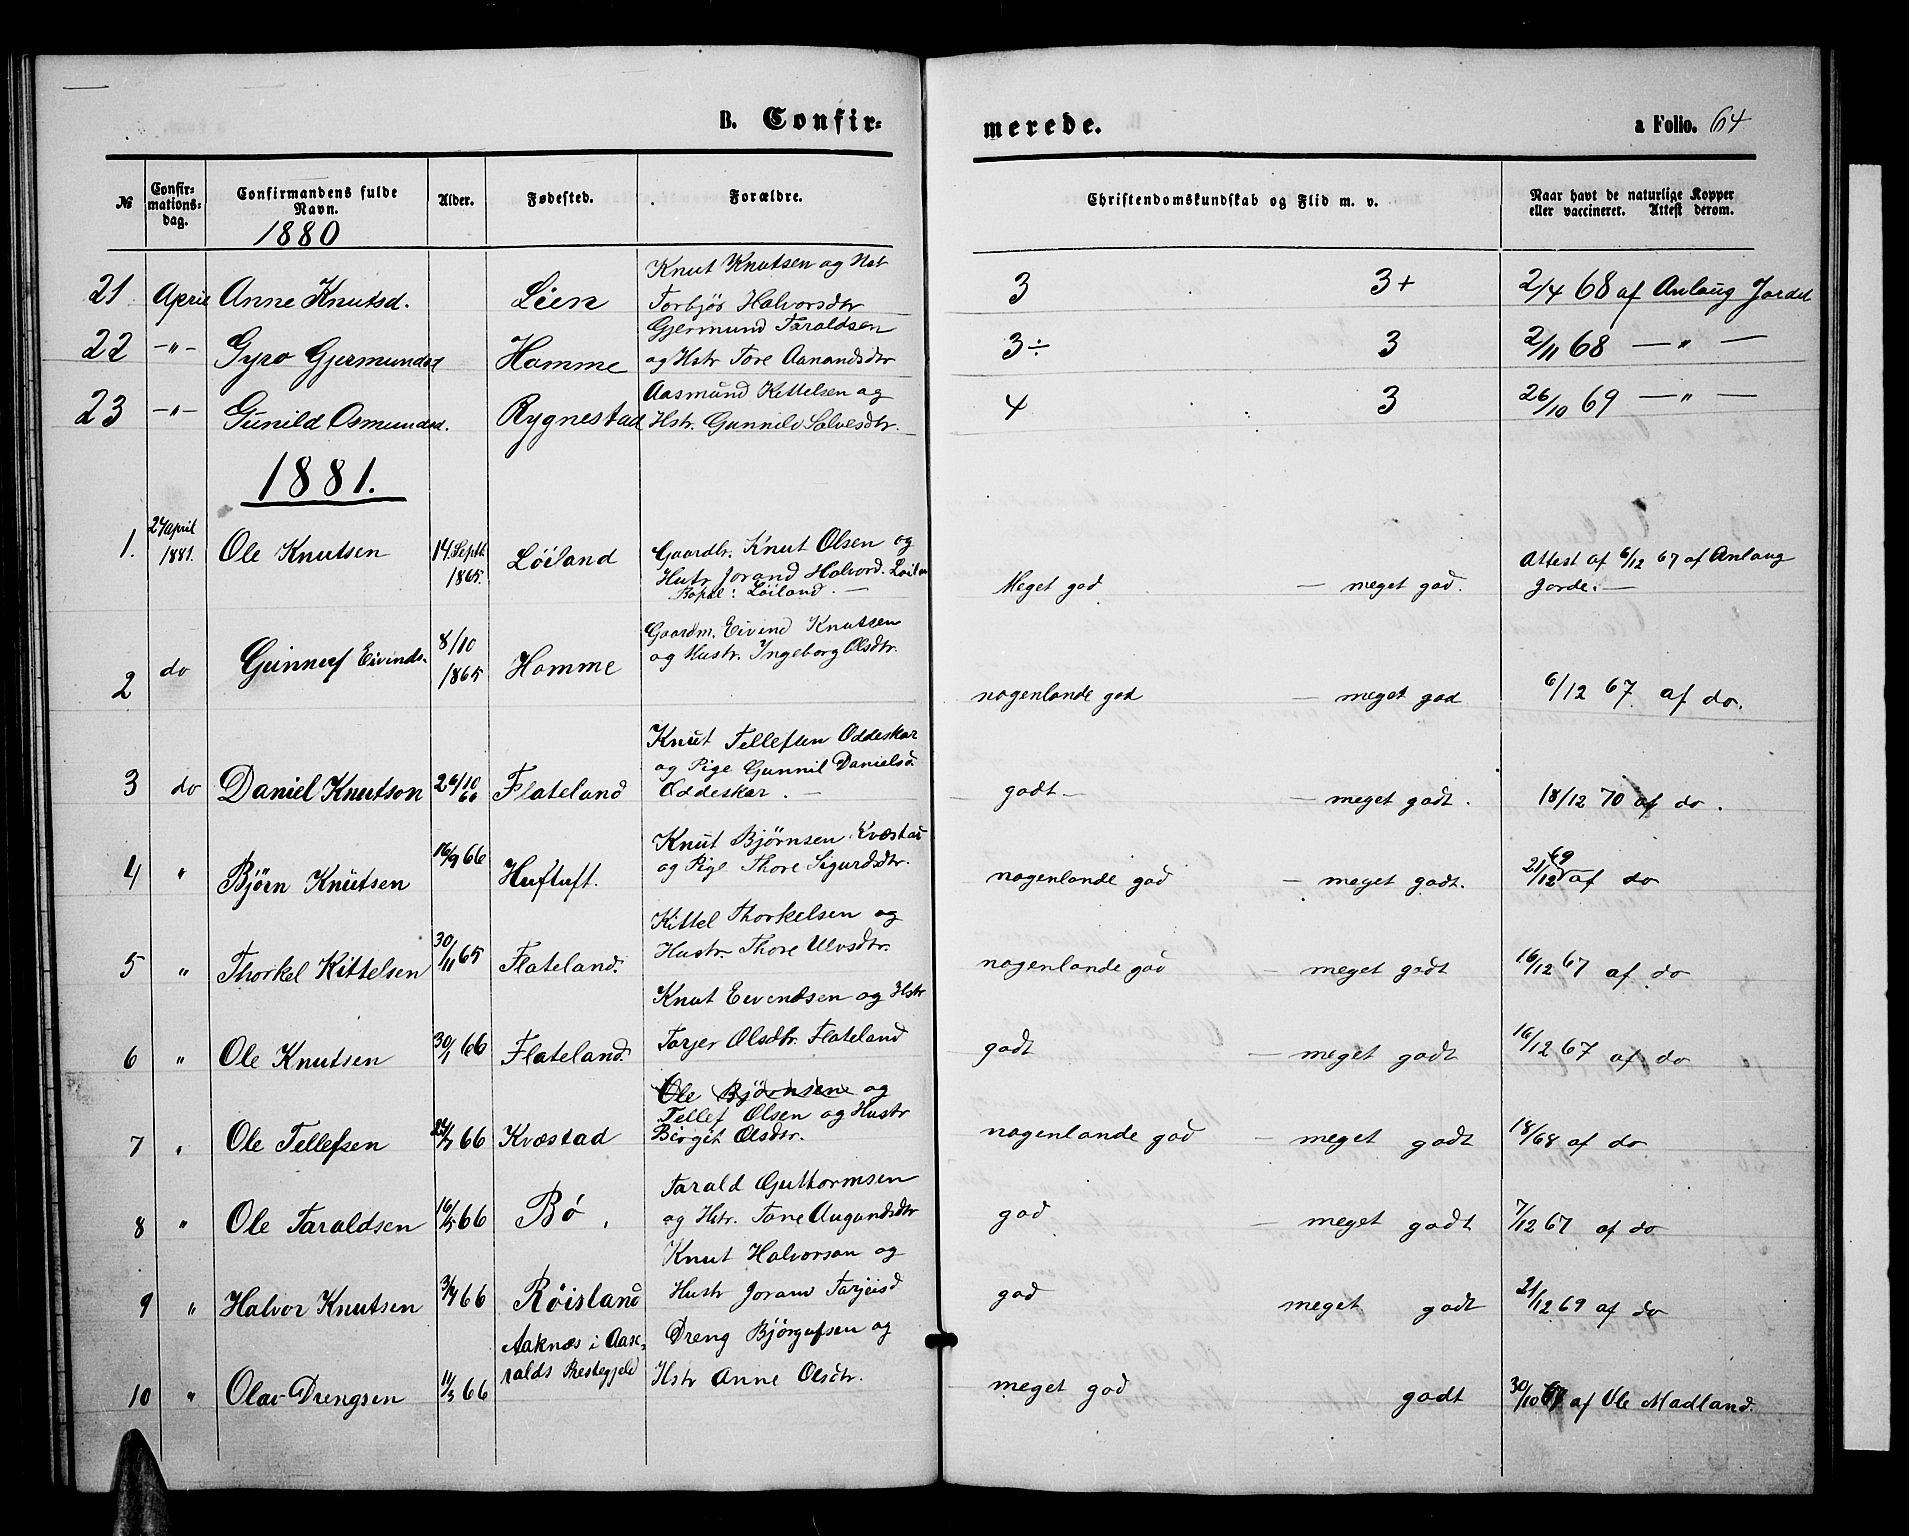 B. Confir-
merede.
a Folio. 64
№ Confir-mations-dag. Confirmandens fulde Navn. Alder. Fødested. Forældre. Christendomskundskab og Flid m. v. Naar havt de naturlige Kopper eller vaccineret. Attest derom.
1880
Knut Knutsen og Hst
21 April Anne Knutsd. Lien Torbjør Halvorsdtr 3 3+ 2/4 68 af Anlaug Jordet
Gjermund Taraldsen
22 -"- Gyro Gjermundsd Homme og Hstr Tore Aanandsdtr 3÷ 3 2/11 68 — " —
Aasmund Kittelsen og
23 -"- Gunild Osmundsd. Rygnestad Hstr. Gunnild Salvesdtr. 4 3 26/10 69 — " —
1881.
24 april
1. 1881. Ole Knutsen 14. Septb Løiland Gaardbr. Knut Olsen og Attest af 6/12 67 af Anlaug
1865. Hustr Jorand Halvord. Meget god — meget god. Jorde. —
Bopæl: Løiland. —
8/10 Gaardm. Eivend Knutsen
2 do Gunnuf Eivends. 1865 Homme og Hustr. Ingeborg Olsdtr. nogenlande god — meget god 6/12 67 af do.
Knut Tellefsen Oddeskar
og Pige Gunnil Danielsd.
3 do Daniel Knutson 26/10 60 Flateland Oddeskar. — godt — — meget godt. 18/12 70 af do.
Knut Bjørnsen Kvæstad
4 " Bjørn Knutsen 16/9 66 Huftuft. og Pige Thore Sigurdsdtr. nogenlande god — meget godt. 21/12 69 af do
Kittel Thorkelsen og
5 " Thorkel Kittelsen 30/11 65 Flateland. Hustr. Thore Ulvsdtr. nogenlande god — meget godt 16/12 67 af do
Knut Eivendsen og Hstr
6 " Ole Knutsen 30/1 66 Flateland. Tarjer Olsdtr. Flateland godt — meget godt 16/12 67 af do
Ole Bjørnsene og
Tellef Olsen og Hustr
7 " Ole Tellefsen 66 Kvæstad Birgit Olsdtr. nogenlande god — meget godt 18/68 af do
Tarald Guttormsen
8 " Ole Taraldsen 16/5 66 Bø. og Hstr. Tone Augundsdtr god — meget godt 7/12 67 af do
Knut Halvorson og
9 " Halvor Knutsen 3/4 66 Røisland Hustr Joran Tarjeisd god meget godt 21/12 69 af do
Aaknæs i Aase- Dreng Bjørgufsen og
10 " Olav Drengsen 11/3 66 ralds Prestegjeld Hstr Anne Olsdtr. meget god godt 30/10 67 af Ole Madland.